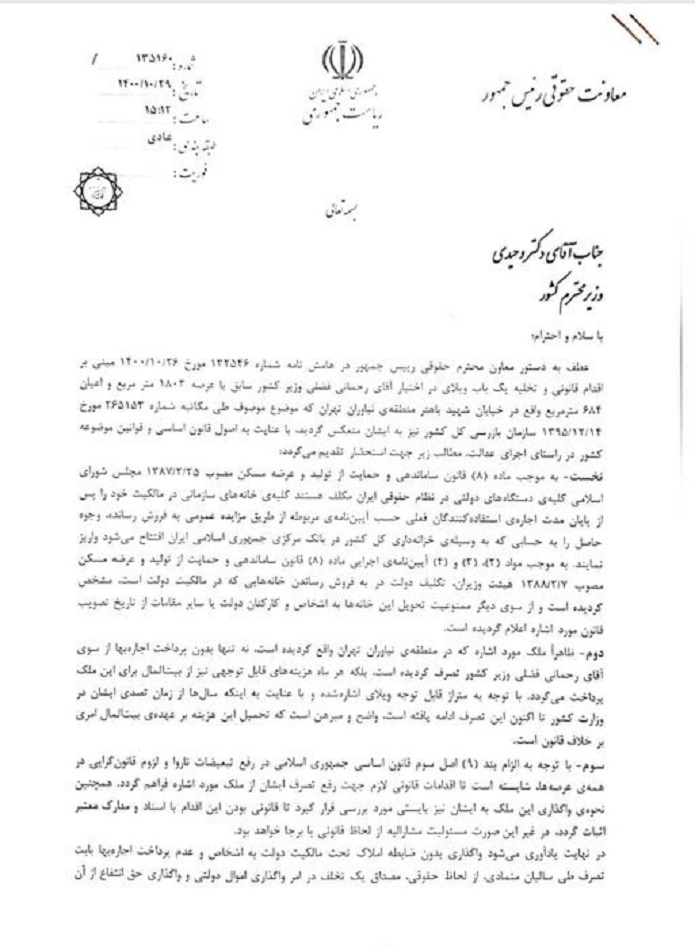 معاونت حقوقی رئیس جمهور
جمهوری اسلامی ایران
ریاست جمهوری
شماره: ۱۳۵۱۶۰ /
تاریخ: ۱۴۰۰/۱۰/۲۹
ساعت: ۱۵:۱۲
طبقه بندی: عادی
فوریت:
بسمه تعالی
جناب آقای دکتر وحیدی
وزیر محترم کشور
با سلام و احترام؛
عطف به دستور معاون محترم حقوقی رییس جمهور در هامش نامه شماره ۱۳۲۵۴۶ مورخ ۱۴۰۰/۱۰/۲۶ مبنی بر
اقدام قانونی و تخلیه یک باب ویلای در اختیار آقای رحمانی فضلی وزیر کشور سابق با عرصه ۱۸۰۳ متر مربع و اعیان
۶۸۴ مترمربع واقع در خیابان شهید باهنر منطقه‌ی نیاوران تهران که موضوع موصوف طی مکاتبه شماره ۲۶۵۱۵۳ مورخ
۱۳۹۵/۱۲/۱۴ سازمان بازرسی کل کشور نیز به ایشان منعکس گردید، با عنایت به اصول قانون اساسی و قوانین موضوعه
کشور در راستای اجرای عدالت، مطالب زیر جهت استحضار تقدیم می‌گردد:
نخست- به موجب ماده (۸) قانون ساماندهی و حمایت از تولید و عرضه مسکن مصوب ۱۳۸۷/۲/۲۵ مجلس شورای
اسلامی کلیه‌ی دستگاه‌های دولتی در نظام حقوقی ایران مکلف هستند کلیه‌ی خانه‌های سازمانی در مالکیت خود را پس
از پایان مدت اجاره‌ی استفاده‌کنندگان فعلی حسب آیین‌نامه‌ی مربوطه از طریق مزایده عمومی به فروش رسانده، وجوه
حاصل را به حسابی که به وسیله‌ی خزانه‌داری کل کشور در بانک مرکزی جمهوری اسلامی ایران افتتاح می‌شود واریز
نمایند. به موجب مواد (۲)، (۳) و (۴) آیین‌نامه‌ی اجرایی ماده (۸) قانون ساماندهی و حمایت از تولید و عرضه مسکن
مصوب ۱۳۸۸/۲/۷ هیئت وزیران، تکلیف دولت در به فروش رساندن خانه‌هایی که در مالکیت دولت است، مشخص
گردیده است و از سوی دیگر ممنوعیت تحویل این خانه‌ها به اشخاص و کارکنان دولت یا سایر مقامات از تاریخ تصویب
قانون مورد اشاره اعلام گردیده است.
دوم- ظاهراً ملک مورد اشاره که در منطقه‌ی نیاوران تهران واقع گردیده است، نه تنها بدون پرداخت اجاره‌بها از سوی
آقای رحمانی فضلی وزیر کشور تصرف گردیده است، بلکه هر ماه هزینه‌های قابل توجهی نیز از بیت‌المال برای این ملک
پرداخت می‌گردد. با توجه به متراژ قابل توجه ویلای اشاره‌شده و با عنایت به اینکه سال‌ها از زمان تصدی ایشان در
وزارت کشور تا اکنون این تصرف ادامه یافته است، واضح و مبرهن است که تحمیل این هزینه بر عهده‌ی بیت‌المال امری
بر خلاف قانون است.
سوم- با توجه به الزام بند (۹) اصل سوم قانون اساسی جمهوری اسلامی در رفع تبعیضات ناروا و لزوم قانون‌گرایی در
همه‌ی عرصه‌ها، شایسته است تا اقدامات قانونی لازم جهت رفع تصرف ایشان از ملک مورد اشاره فراهم گردد. همچنین
نحوه‌ی واگذاری این ملک به ایشان نیز بایستی مورد بررسی قرار گیرد تا قانونی بودن این اقدام با اسناد و مدارک معتبر
اثبات گردد، در غیر این صورت مسئولیت مشارالیه از لحاظ قانونی پا برجا خواهد بود.
در نهایت یادآوری می‌شود واگذاری بدون ضابطه املاک تحت مالکیت دولت به اشخاص و عدم پرداخت اجاره‌بها بابت
تصرف طی سالیان متمادی، از لحاظ حقوقی، مصداق یک تخلف در امر واگذاری اموال دولتی و واگذاری حق انتفاع از آن